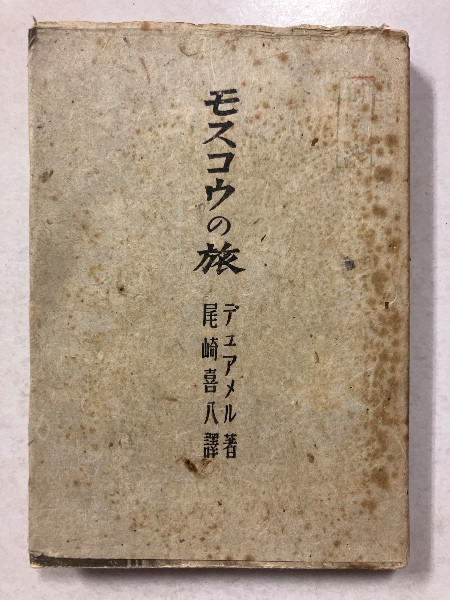 モスコウの旅
デュアメル著
尾崎喜八譯